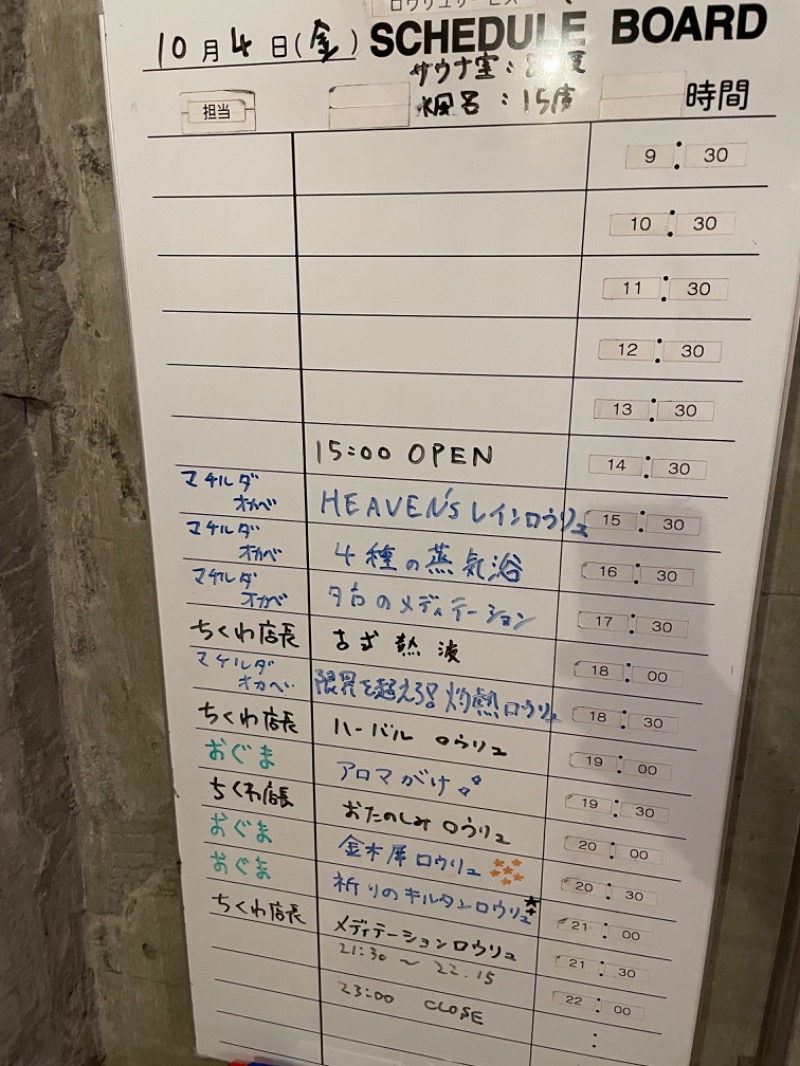 ロウリュサービス
10月4日(金) SCHEDULE BOARD
サウナ室:度
水風呂:15度
担当 時間
9:30
10:30
11:30
12:30
13:30
15:00 OPEN 14:30
マチルダ オカベ HEAVEN'S レインロウリュ 15:30
マチルダ オカベ 4種の蒸気浴 16:30
マチルダ オカベ のメディテーション 17:30
ちくわ店長 古式熱波 18:00
マチルダ オカベ 限界を超えろ!灼熱ロウリュ 18:30
ちくわ店長 ハーバル ロウリュ 19:00
おぐま アロマがけ 19:30
ちくわ店長 おたのしみロウリュ 20:00
おぐま 金木犀ロウリュ 20:30
おぐま 祈りのキルタンロウリュ 21:00
ちくわ店長 メディテーションロウリュ 21:30
21:30 〜 22.15 22:00
23:00 CLOSE :